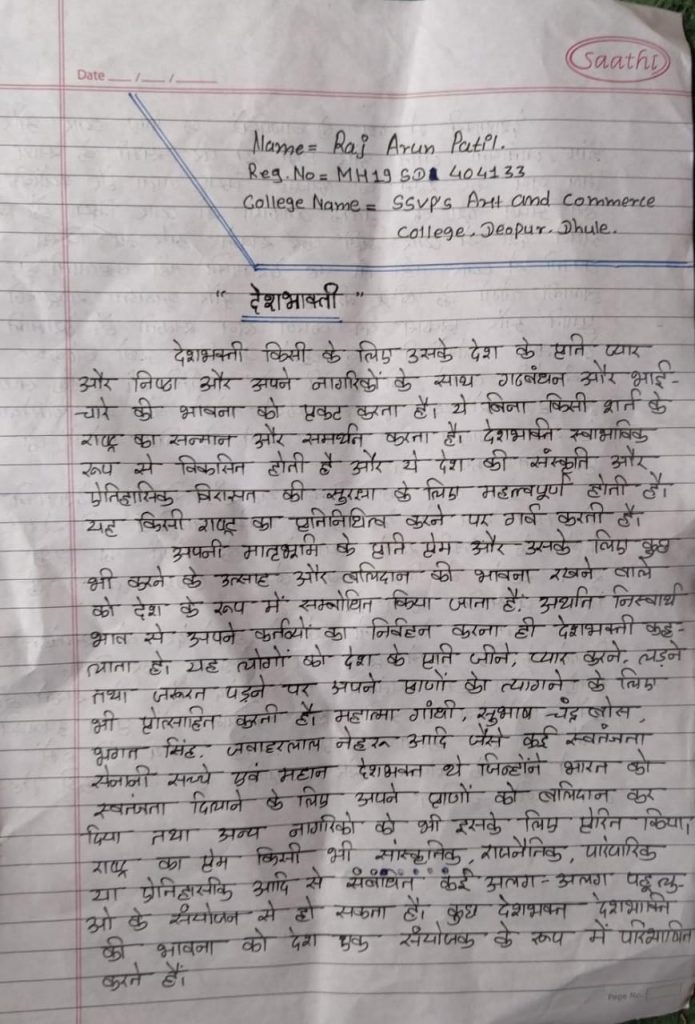 Saathi
Date __/__/____
Name = Raj Arun Patil.
Reg. No = MH19 SD 404133
College Name = SSVP's Art and Commerce
College, Deopur. Dhule.
" देशभाक्ती "
देशभक्ती किसी के लिए उसके देश के प्रति प्यार
और निष्ठा और अपने नागरिकों के साथ गठबंधन और भाई-
चारे की भावना को प्रकट करता है। ये बिना किसी शर्त के
राष्ट्र का सन्मान और समर्थन करता है। देशभक्ति स्वाभाविक
रूप से विकसित होती है और ये देश की संस्कृति और
ऐतिहासिक विरासत की सुरक्षा के लिए महत्वपूर्ण होती है।
यह किसी राष्ट्र का प्रतिनिधित्व करने पर गर्व करती है।
अपनी मातृभूमि के प्रति प्रेम और उसके लिए कुछ
भी करने के उत्साह और बलिदान की भावना रखने वाले
को देश के रूप में सम्बोधित किया जाता है. अर्थात निस्वार्थ
भाव से अपने कर्तव्यों का निर्वहन करना ही देशभक्ती कह-
लाता है। यह लोगों को देश के प्रति जीने, प्यार करने, लडने
तथा जरूरत पड़ने पर अपने प्राणों को त्यागने के लिए
भी प्रोत्साहित करती है। महात्मा गांधी, सुभाष चंद्र बोस,
भगत सिंह, जवाहरलाल नेहरू आदि जैसे कई स्वतंत्रता
सेनानी सच्चे एवं महान देशभक्त थे जिन्होंने भारत को
स्वतंत्रता दिलाने के लिए अपने प्राणों को बलिदान कर
दिया तथा अन्य नागरिको को भी इसके लिए प्रेरित किया।
राष्ट्र का प्रेम किसी भी सांस्कृतिक, राजनैतिक, पारंपारिक
या ऐतिहासीक आदि से संबंधित कई अलग-अलग पहलु-
ओ के संयोजन से हो सकता है। कुछ देशभक्त देशभक्ति
की भावना को देश एक संयोजक के रूप में परिभाषित
करते हैं।
Page No.